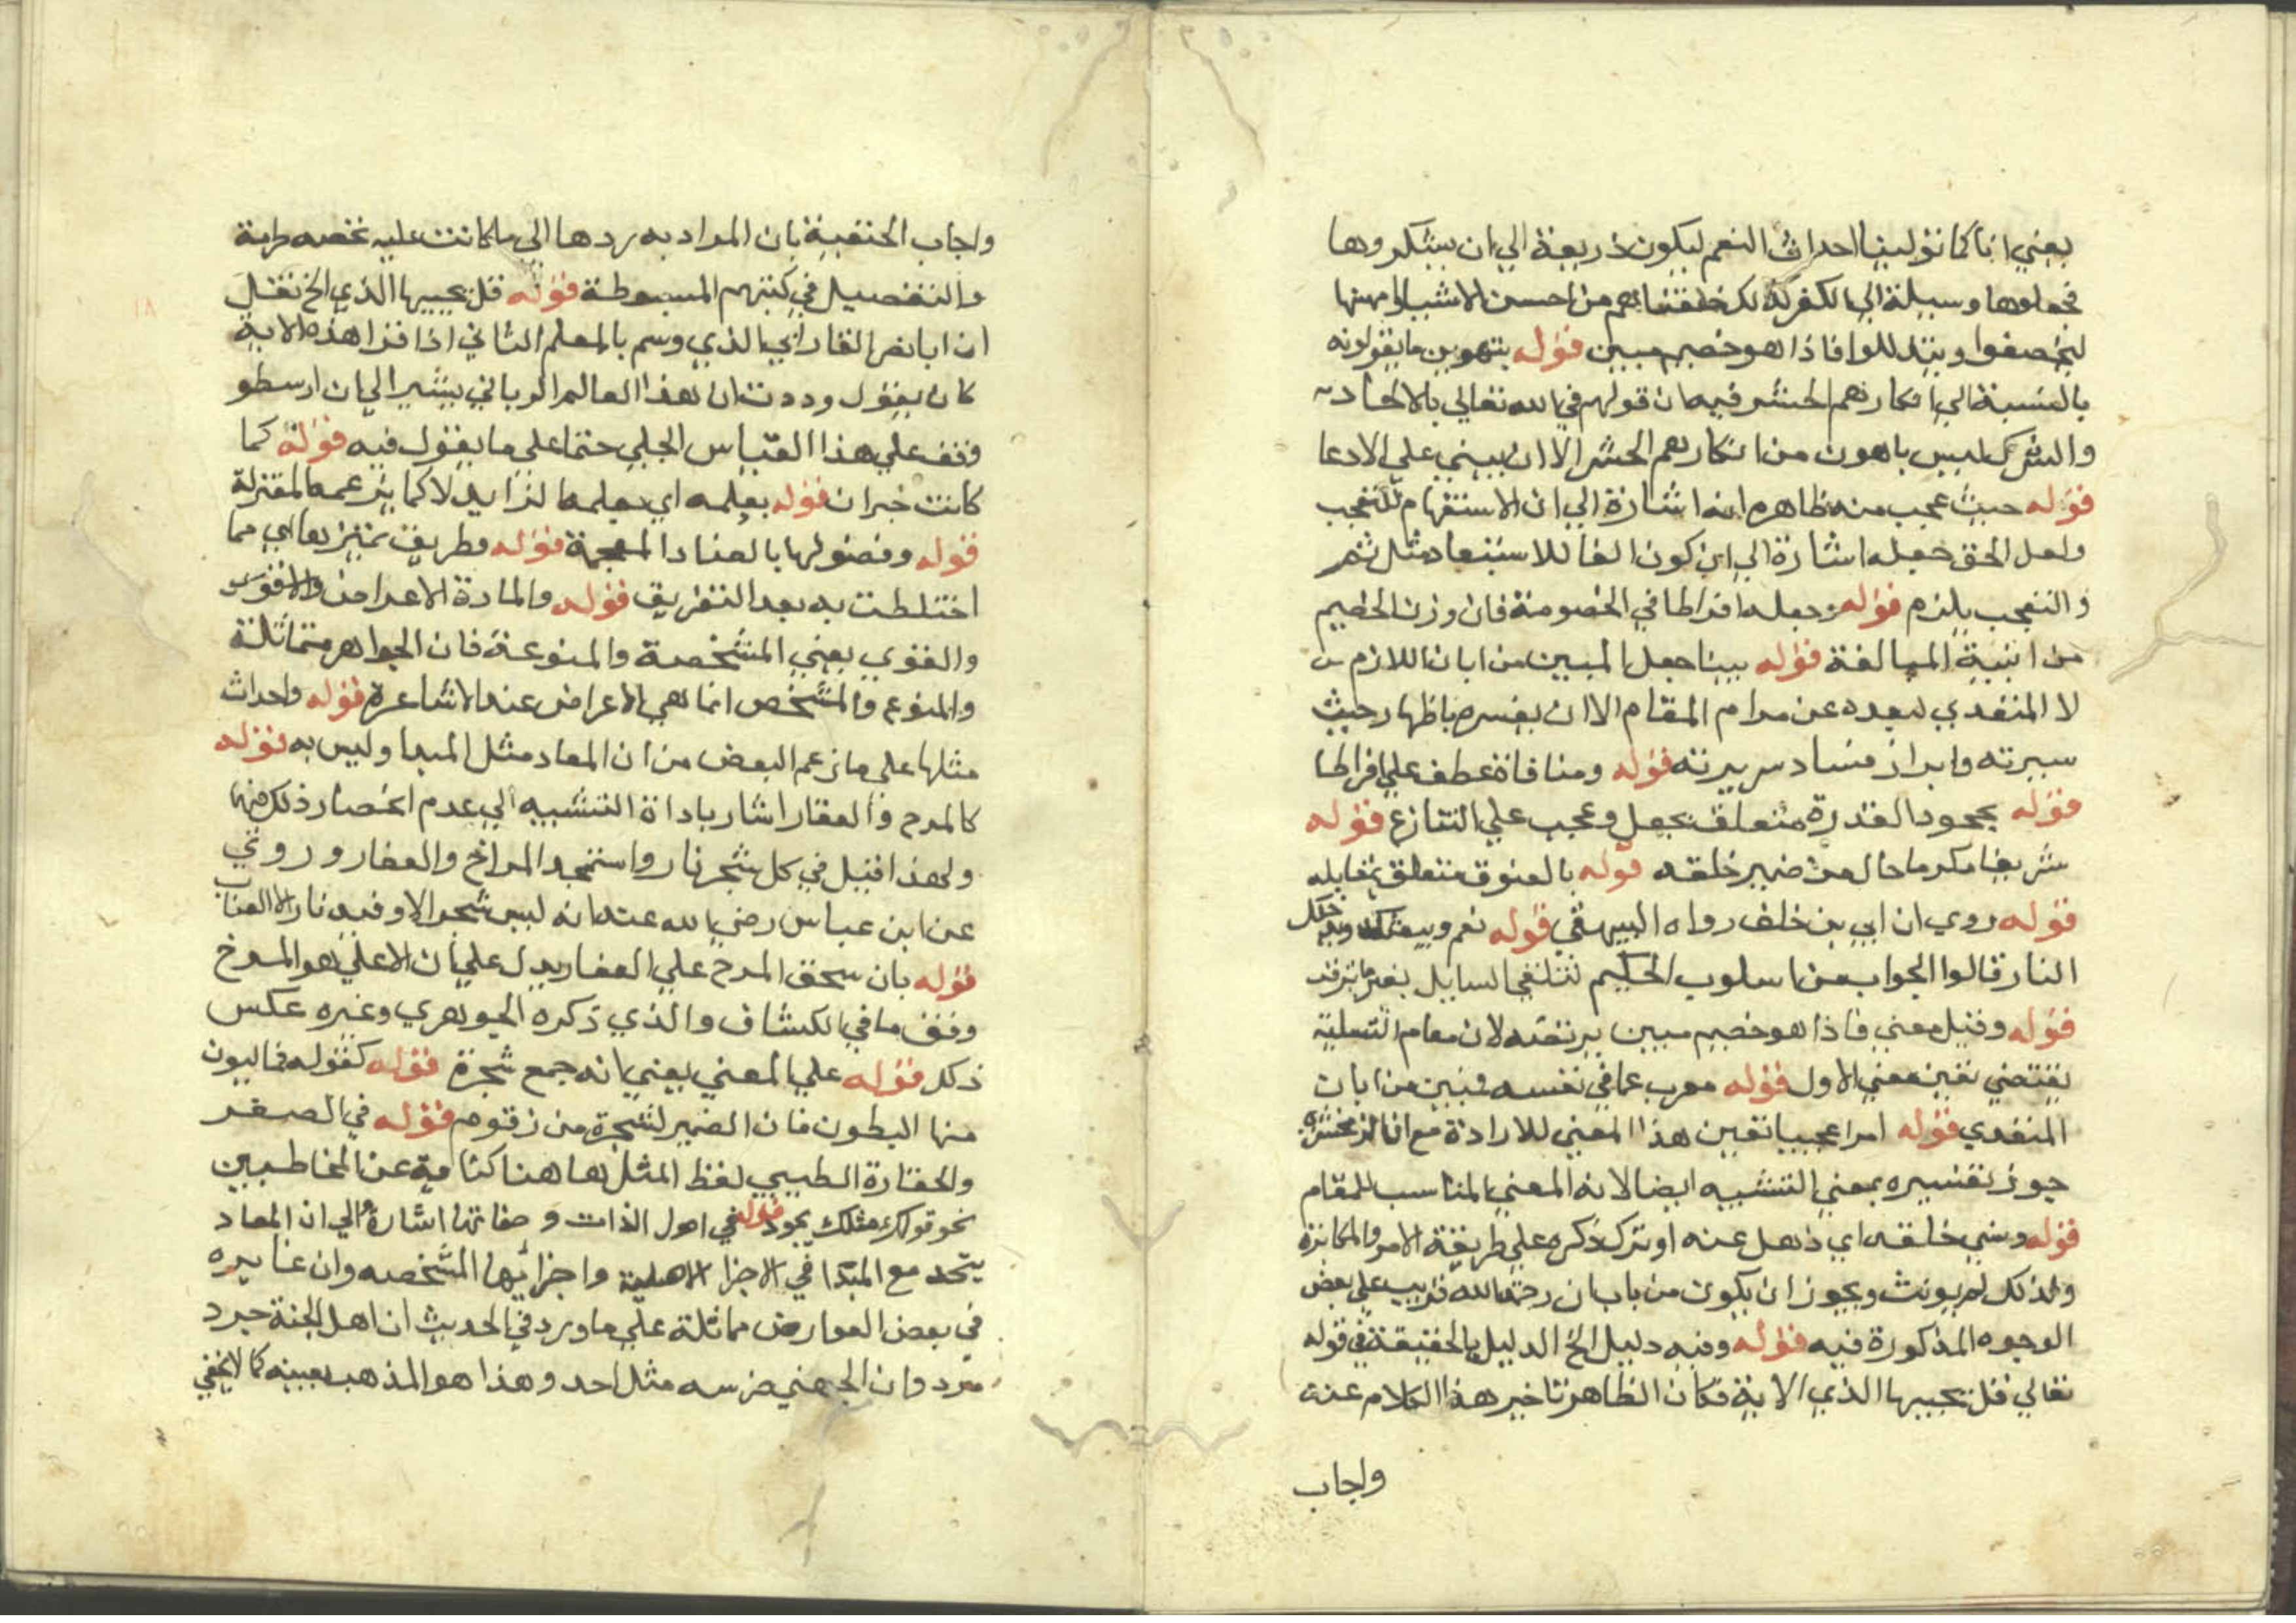 يعني انا كما تولينا احداث النعم ليكون ذريعة الي ان يشكروها
فجعلوها وسيلة الي الكفر كذلك خلقناهم من احسن الاشيا وامهنها
ليخضعوا ويتذللوا فاذا هو خصيم مبين قوله بتهوين ما يقولونه
بالنسبة الي انكارهم الحشر فيه ان قولهم في الله تعالي بالالحاد
والشرك ليس باهون من انكارهم الحشر الا ان يبني علي الادعا
قوله حيث عجب منه ظاهره انه اشارة الي ان الاستفهام للتعجب
ولعل الحق جعله اشارة الي ان كون الفا للاستبعاد مثل ثم
والتعجب يلزم قوله وجعله افراطا في الخصومة فان وزن الخصيم
من ابنية المبالغة قوله بينا جعل المبين من ابان اللازم
لا المتعدي لبعده عن مرام المقام الا ان يفسر باظهار حيث
سيرته وابراز فساد سريرته قوله ومنافاة عطف علي افراطا
قوله بجحود القدرة متعلق بجعل وعجب علي التنازع قوله
شريفا مكرما حال من ضمير خلقه قوله بالعنوق متعلق بمقابله
قوله روي ان ابي بن خلف رواه البيهقي قوله نعم ويبعثك ويدخلك
النار قالوا الجواب من اسلوب الحكيم لتلقي السايل بغير ما يترقب
قوله وقيل معني فاذا هو خصيم مبين يرتضه لان مقام التسلية
يقتضي تعين معني الاول قوله معرب عما في نفسه فبين من ابان
المتعدي قوله امرا عجيبا تعين هذا المعني للارادة مع ان الزمخشري
جوز تفسيره بمعني التشبيه ايضا لانه المعني المناسب للمقام
قوله ونسي خلقه اي ذهل عنه او ترك ذكره علي طريقة الامر والمكابرة
ولذلك لم يونث ويجوز ان يكون من باب ان رحمة الله قريب علي بعض
الوجوه المذكورة فيه قوله وفيه دليل الخ الدليل بالحقيقة في قوله
تعالي قل يحييها الذي الاية فكان الظاهر تاخير هذا الكلام عنه
واجاب
واجاب الحنفية بان المراد به ردها الي ما كانت عليه غضة رطبة
والتفصيل في كتبهم المبسوطة قوله قل يحييها الذي الخ نقل
ان ابا نصر الفارابي الذي وسم بالمعلم الثاني اذا قرا هذه الاية
كان يقول وددت ان هذا العالم الرباني يشير الي ان ارسطو
وقف علي هذا القياس الجلي حتما علي ما يقول فيه قوله كما
كانت خبر ان قوله بعلمه اي بعلمه الزايد لا كما يزعمه المعتزلة
قوله وفصولها بالصاد المعجمة قوله وطريق تمييزها اي مما
اختلطت به بعد التفريق قوله والمادة الاعراض والاقوي
والقوي يعني المشخصة والمنوعة فان الجواهر متماثلة
والمنوع والمشخص انما هي الاعراض عند الاشاعرة قوله واحداث
مثلها علي ما زعم البعض من ان المعاد مثل المبدا وليس به قوله
كالمرح والعفار اشار باداة التشبيه الي عدم انحصار ذلك فيهما
ولهذا قيل في كل شجر نار واستمجد المراخ والعفار وروي
عن ابن عباس رضي الله عنه انه ليس شجر الا وفيه نار الا العناب
قوله بان سحق المرح علي العفار يدل علي ان الاعلي هو المرخ
وفق ما في الكشاف والذي ذكره الجوهري وغيره عكس
ذلك قوله علي المعني يعني انه جمع شجرة قوله كقوله فماليون
منها البطون فان الضمير لشجرة من زقوم قوله في الصغر
والحقارة الطيبي لفظ المثل هاهنا كناية عن المخاطبين
نحو قولك مثلك يجود قوله في اصول الذات وصفاتها اشارة الي ان المعاد
يتحد مع المبتدا في الاجزا الاصلية واجزائها المشخصه وان غايره
في بعض العوارض مماثلة علي ما ورد في الحديث ان اهل الجنة جرد
مرد وان الجهنمي ضرسه مثل احد وهذا هو المذهب بعينه كما لا يخفي
١٨